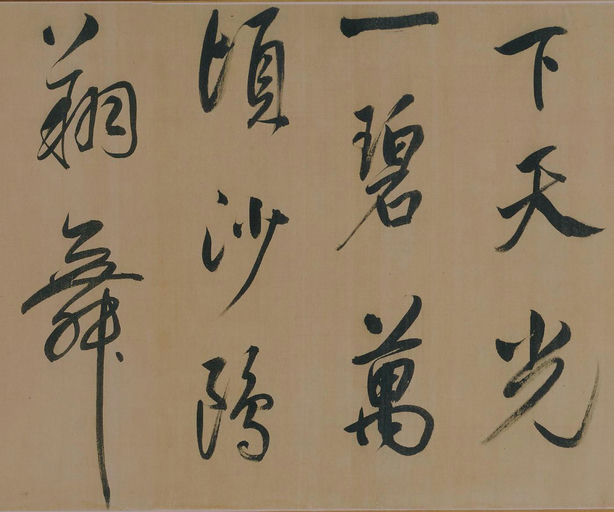 下天光
一碧萬
頃沙鷗
翔舞